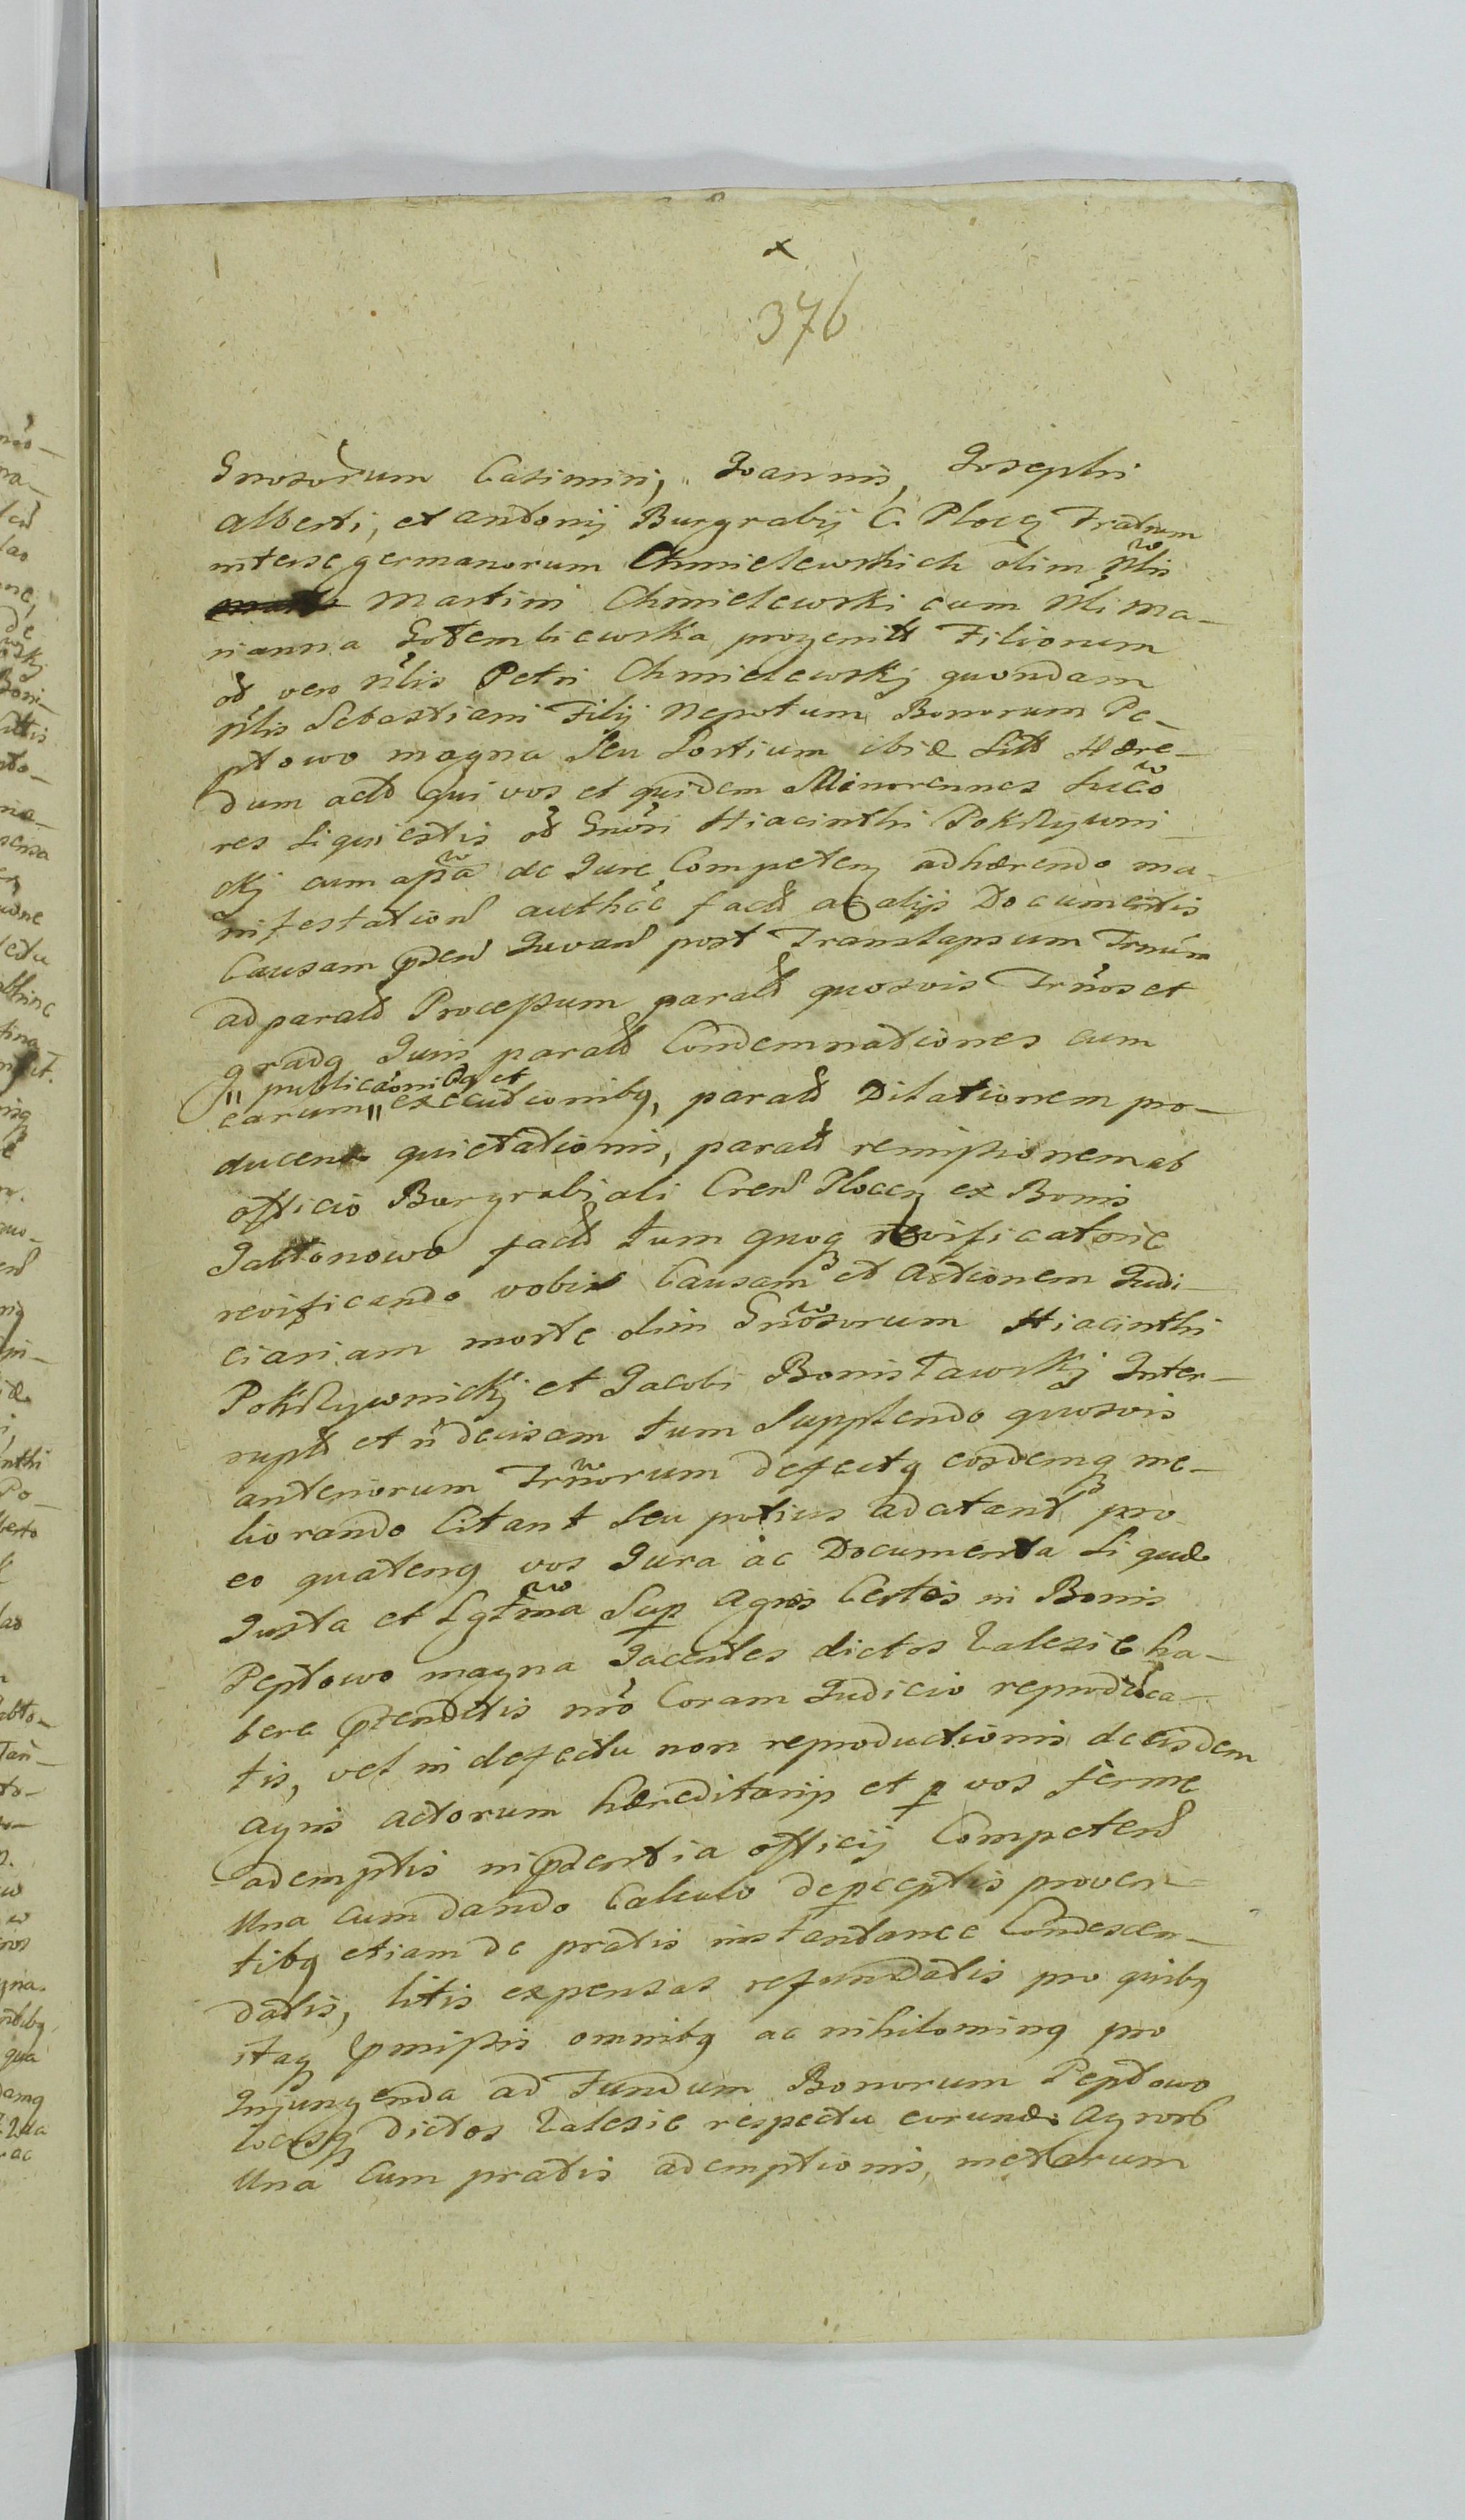 x
376
Gnosorum Casimiri, Joannis, Josephi
Alberti, et Antonij Burgrabij C. Plocq Fratrum
interse germanorum Chmielewskich olim Nlis
Martini Chmielewski cum Nli Ma-
rianna Gołembiewska progenitt Filiorum
ođ vero Nlis Petri Chmielewskj quondam
Nlis Sebastiani Filij Nepotum Bonorum Pe-
płowo magna seu Sortium ibidē Sitt Hære-
dum actđ qui vos et quidem Minorennes Succo
res Liquestis ođ Gnosi Hiacinthi Pokrzywni
ckj cum aßa de Jure Competeñ adhærendo ma-
nifestationi authce factđ ac alijs Documentis
Causam pden Juvanđ post Translapsum Trnum
ad paratđ Processum paratđ quosvis Trnos et
gradq Juris paratđ Condemnationes cum
" publicaonibq et
earum " executionibq, paratđ Dilationem pro-
ducenđ quietationis, paratđ remissionem ab
officio Burgrabiali Cren Plocen ex Bonis
Jabłonowo factđ tum quoq revificatorie
revificando vobis Causam et Actionem Judi-
ciariam morte olim Gnosorum Hiacinthi
Pokrzywnickj et Jacobi Bonisławskj Inter-
ruptđ et ñ decisam tum Supplendo quosvis
anteriorum Trnorum defectq eosdemq me-
liorando Citant seu potius adcitant pro
eo quatenq vos Jura ac Documenta Si quæ
Justa et Lgtma Sup Agris Certis in Bonis
Pepłowo magna Jacentes dictos Zalesie ha-
bere ptenditis nro Coram Judicio reproduca-
tis, vel in defectu non reproductionis de eisdem
agris actorum hæreditarijs et p vos ferme
ademptis in pdentia officij Competenđ
Una cum dando Calculo de pceptis proven-
tibq etiam de pratis instantanee Condescen-
datis, litis expensas refundatis pro quibq
itaq pmissis omnibq ac nihilominq pro
Injungenda ad Fundum Bonorum Pepłowo
locosq dictos Zalesie respectu eorundē Agrorō
Una Cum pratis ademptionis, metarum